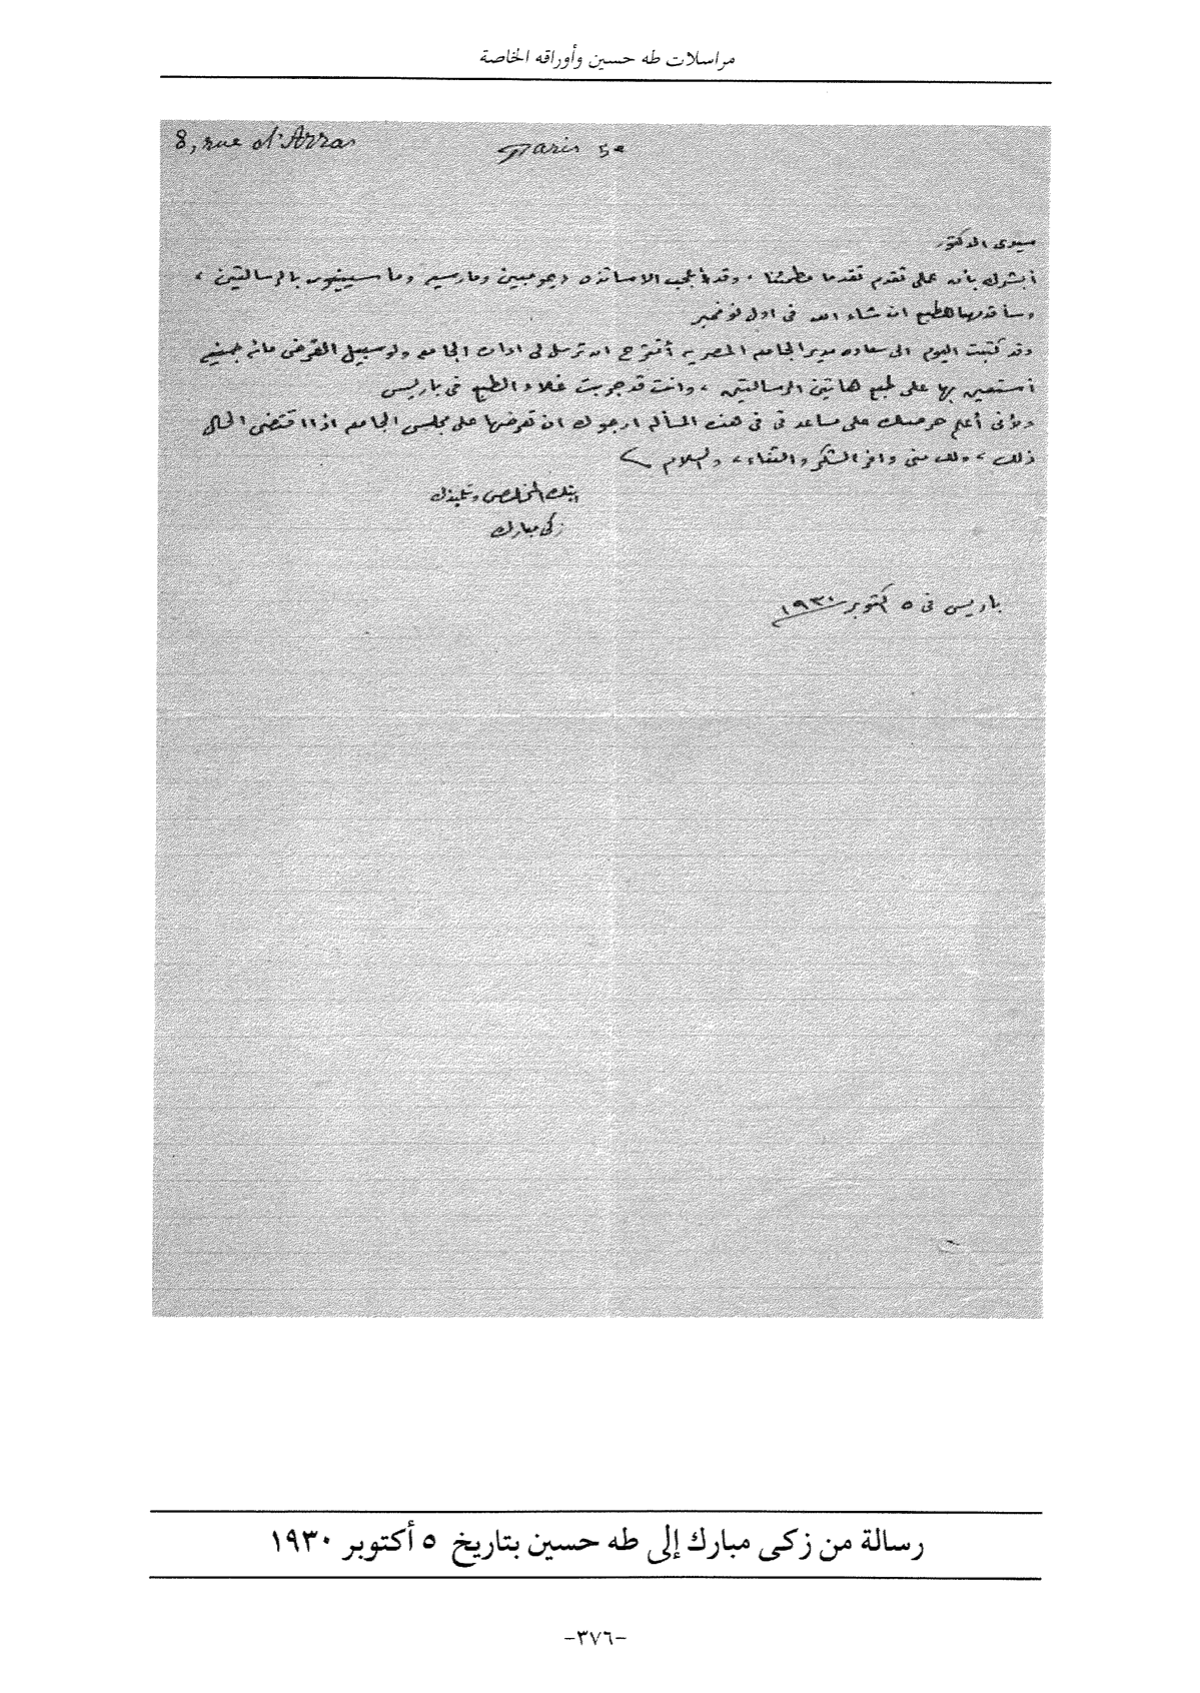 مراسلات طه حسين وأوراقه الخاصة
8, rue d'Arras
Paris 5e
سيدى الدكتور
أبشرك بأن عملى تقدم تقدما مطمئنا، وقد أعجب الاساتذة ديمومبين ومارسيه وماسينيون بالرسالتين،
وسأقدمهما للطبع ان شاء الله فى اول نوفمبر
وقد كتبت اليوم الى سعادة مدير الجامعة المصرية أقترح ان ترسل لى ادارة الجامعة ولو سبيل القرض مائة جنيه
أستعين بها على طبع هاتين الرسالتين، وانت قد جربت غلاء الطبع فى باريس
ولأنى أعلم حرصك على مساعدتى فى هذه المسألة ارجوك ان تعرضها على مجلس الجامعة اذا اقتضى الحال
ذلك، ولك منى وافر الشكر والثناء، والسلام
ابنك المخلص وتلميذك
زكى مبارك
باريس فى ٥ اكتوبر ١٩٣٠
رسالة من زكى مبارك إلى طه حسين بتاريخ ٥ أكتوبر ١٩٣٠
-٣٧٦-